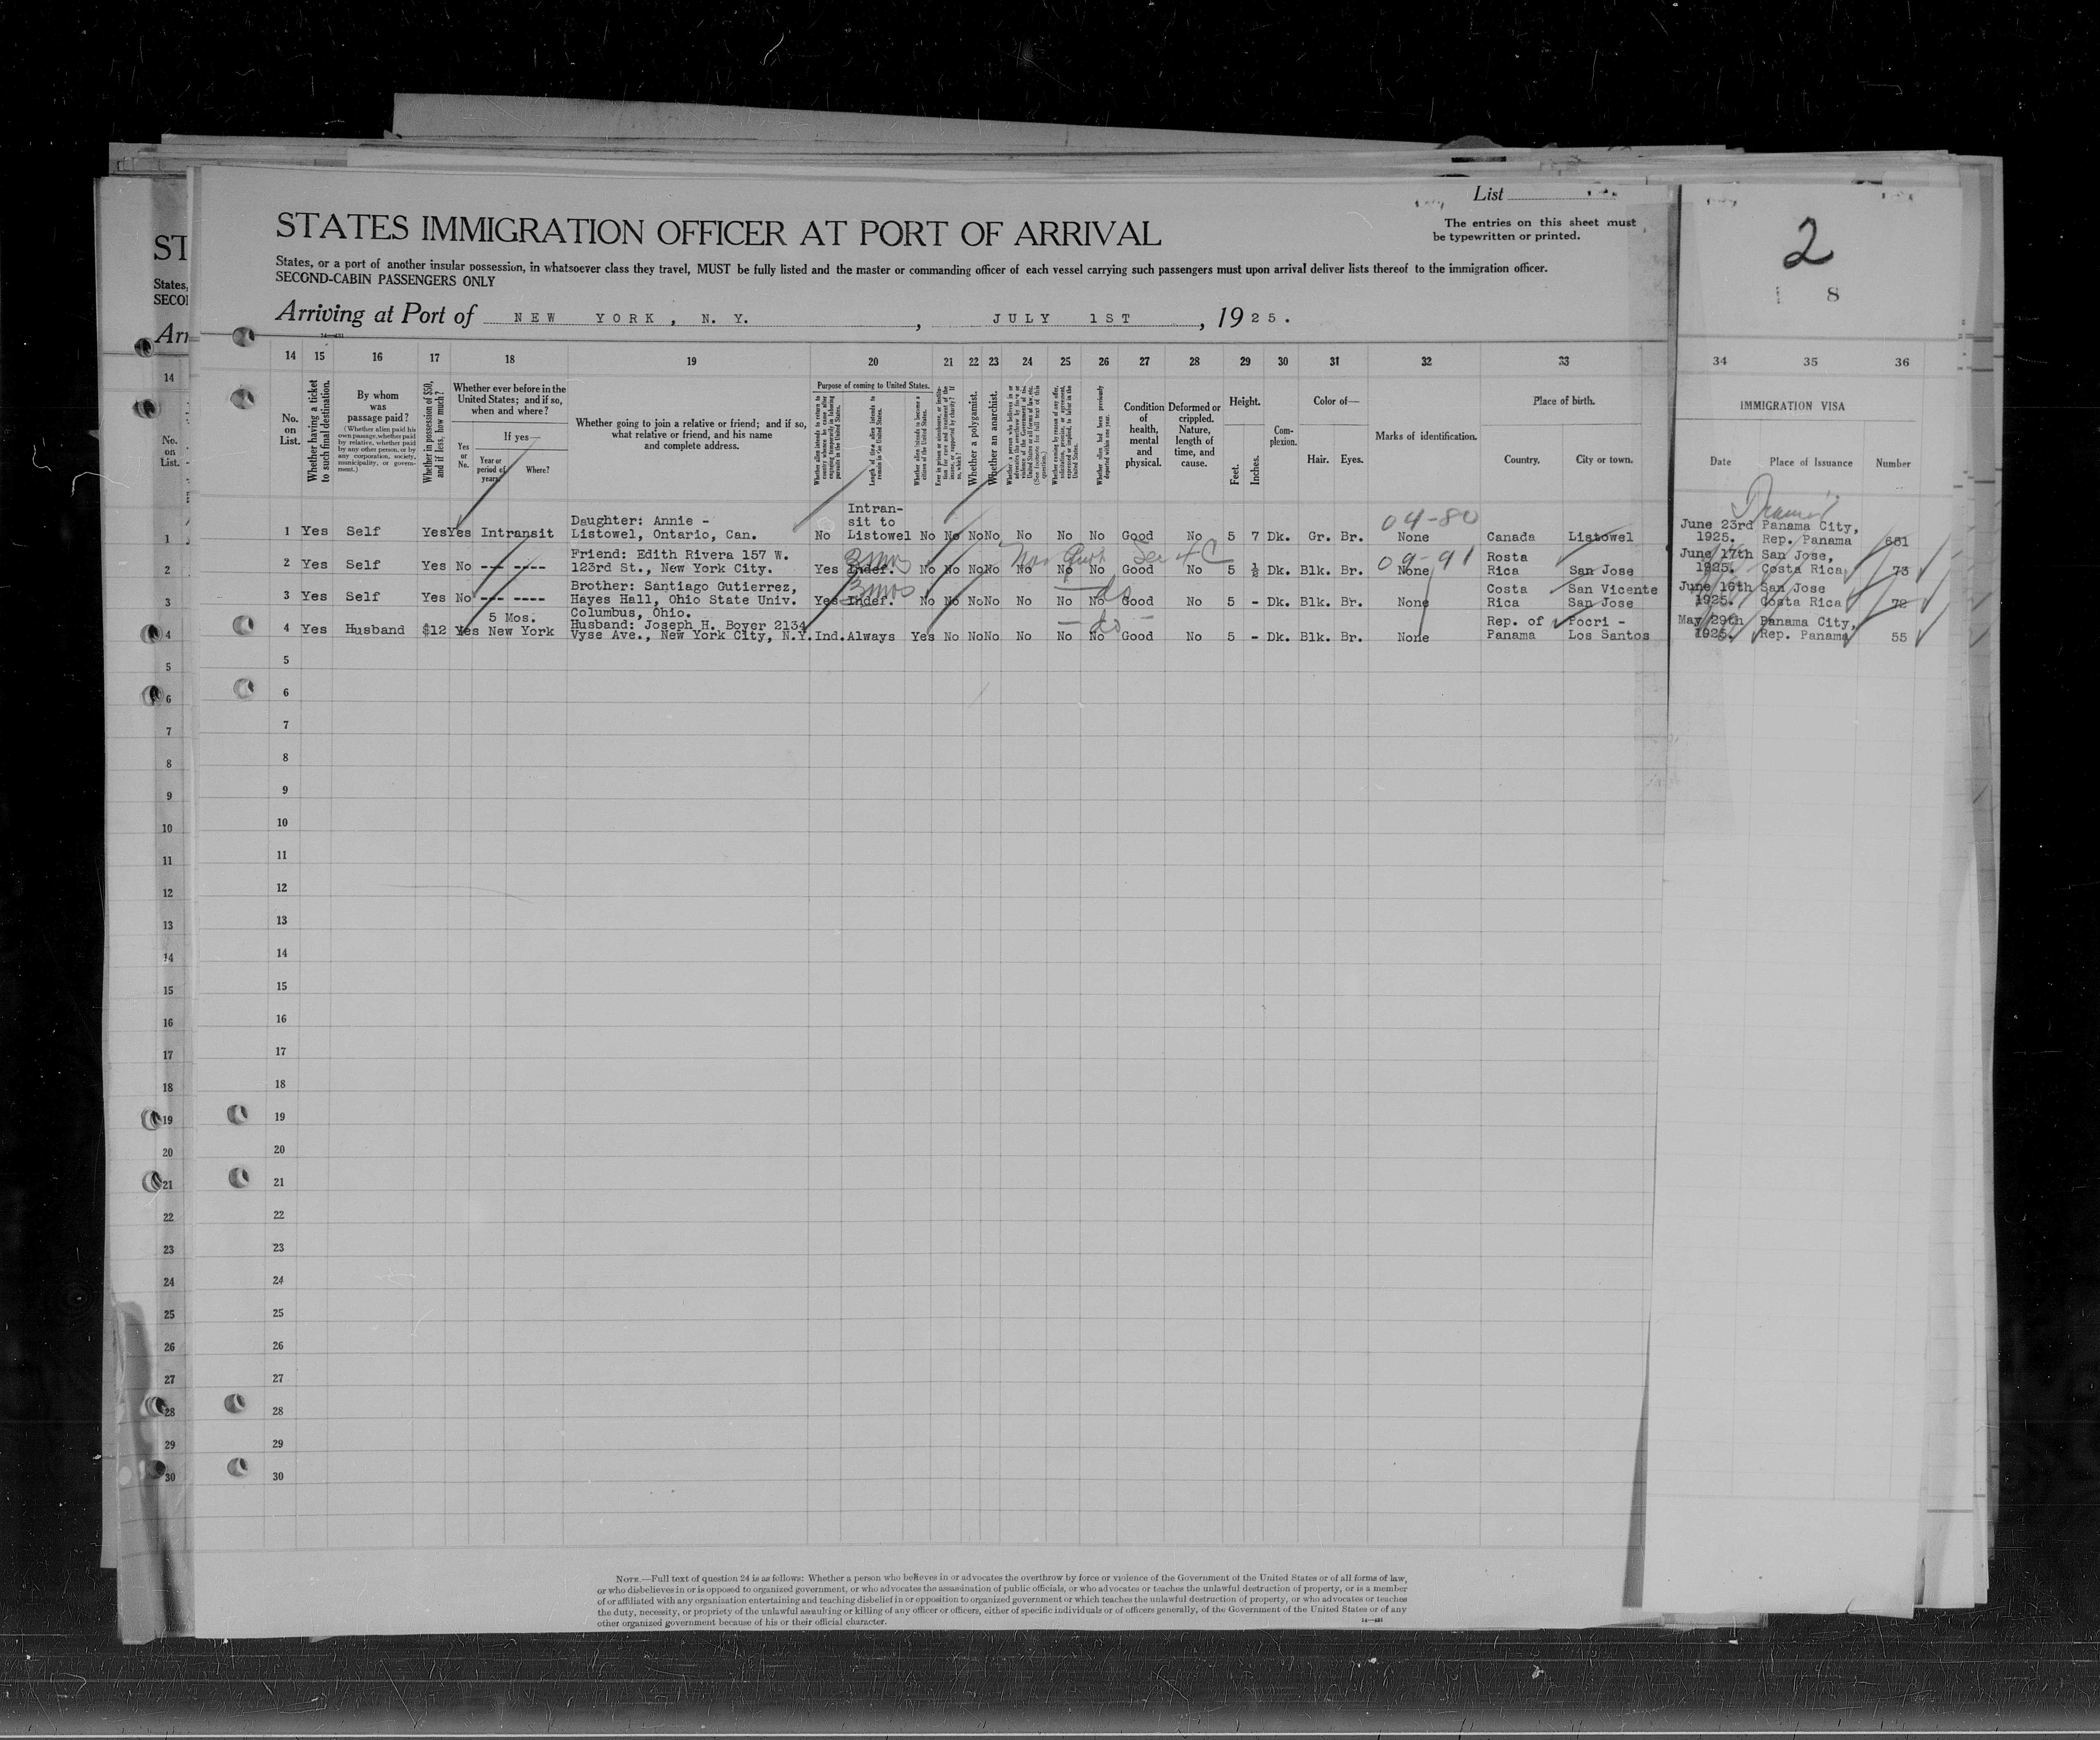 List
The entries on this sheet must
be typewritten or printed.
STATES IMMIGRATION OFFICER AT PORT OF ARRIVAL
States, or a port of another insular possession, in whatsoever class they travel, MUST be fully listed and the master or commanding officer of each vessel carrying such passengers must upon arrival deliver lists thereof to the immigration officer.
SECOND-CABIN PASSENGERS ONLY
Arriving at Port of NEW YORK, N. Y., JULY 1ST, 1925.
2
8
ST
States,
SECO
Arr
14 15 16 17 18 19 20 21 22 23 24 25 26 27 28 29 30 31 32 33 34 35 36
No. on List.
Whether having a ticket to such final destination.
By whom was passage paid?
(Whether alien paid his own passage, whether paid by relative, whether paid by any other person, or by any corporation, society, municipality, or government.)
Whether in possession of $50, and if less, how much?
Whether ever before in the United States; and if so, when and where?
Yes or No.
If yes—
Year or period of years.
Where?
Whether going to join a relative or friend; and if so, what relative or friend, and his name and complete address.
Purpose of coming to United States.
Length of time alien intends to remain in the United States.
Whether alien intends to become a citizen of the United States.
Whether a polygamist.
Whether an anarchist.
Whether alien had been previously deported within one year.
Condition of health, mental and physical.
Deformed or crippled. Nature, length of time, and cause.
Height.
Feet.
Inches.
Complexion.
Color of—
Hair. Eyes.
Marks of identification.
Place of birth.
Country. City or town.
IMMIGRATION VISA
Date Place of Issuance Number
1 Yes Self Yes Yes Intransit Daughter: Annie - Listowel, Ontario, Can. No Intransit to Listowel No No No No No No No Good No 5 7 Dk. Gr. Br. 04-80 None Canada Listowel June 23rd 1925. Panama City, Rep. Panama 681
2 Yes Self Yes No --- ---- Friend: Edith Rivera 157 W. 123rd St., New York City. Yes Indef. 3 mos No No No No No No No Good No 5 ½ Dk. Blk. Br. 09-91 None Rosta Rica San Jose June 17th 1925. San Jose, Costa Rica 73
3 Yes Self Yes No --- ---- Brother: Santiago Gutierrez, Hayes Hall, Ohio State Univ. Columbus, Ohio. Yes Indef. 3 mos No No No No No No No Good No 5 - Dk. Blk. Br. None Costa Rica San Vicente San Jose June 16th 1925. San Jose Costa Rica 72
4 Yes Husband $12 Yes 5 Mos. New York Husband: Joseph H. Boyer 2134 Vyse Ave., New York City, N.Y. Ind. Always Yes No No No No No No Good No 5 - Dk. Blk. Br. None Rep. of Panama Pocri - Los Santos May 29th 1925. Panama City, Rep. Panama 55
- do -
5
6
7
8
9
10
11
12
13
14
15
16
17
18
19
20
21
22
23
24
25
26
27
28
29
30
NOTE.—Full text of question 24 is as follows: Whether a person who believes in or advocates the overthrow by force or violence of the Government of the United States or of all forms of law,
or who disbelieves in or is opposed to organized government, or who advocates the assassination of public officials, or who advocates or teaches the unlawful destruction of property, or is a member
of or affiliated with any organization entertaining and teaching disbelief in or opposition to organized government or which teaches the unlawful destruction of property, or who advocates or teaches
the duty, necessity, or propriety of the unlawful assaulting or killing of any officer or officers, either of specific individuals or of officers generally, of the Government of the United States or of any
other organized government because of his or their official character.